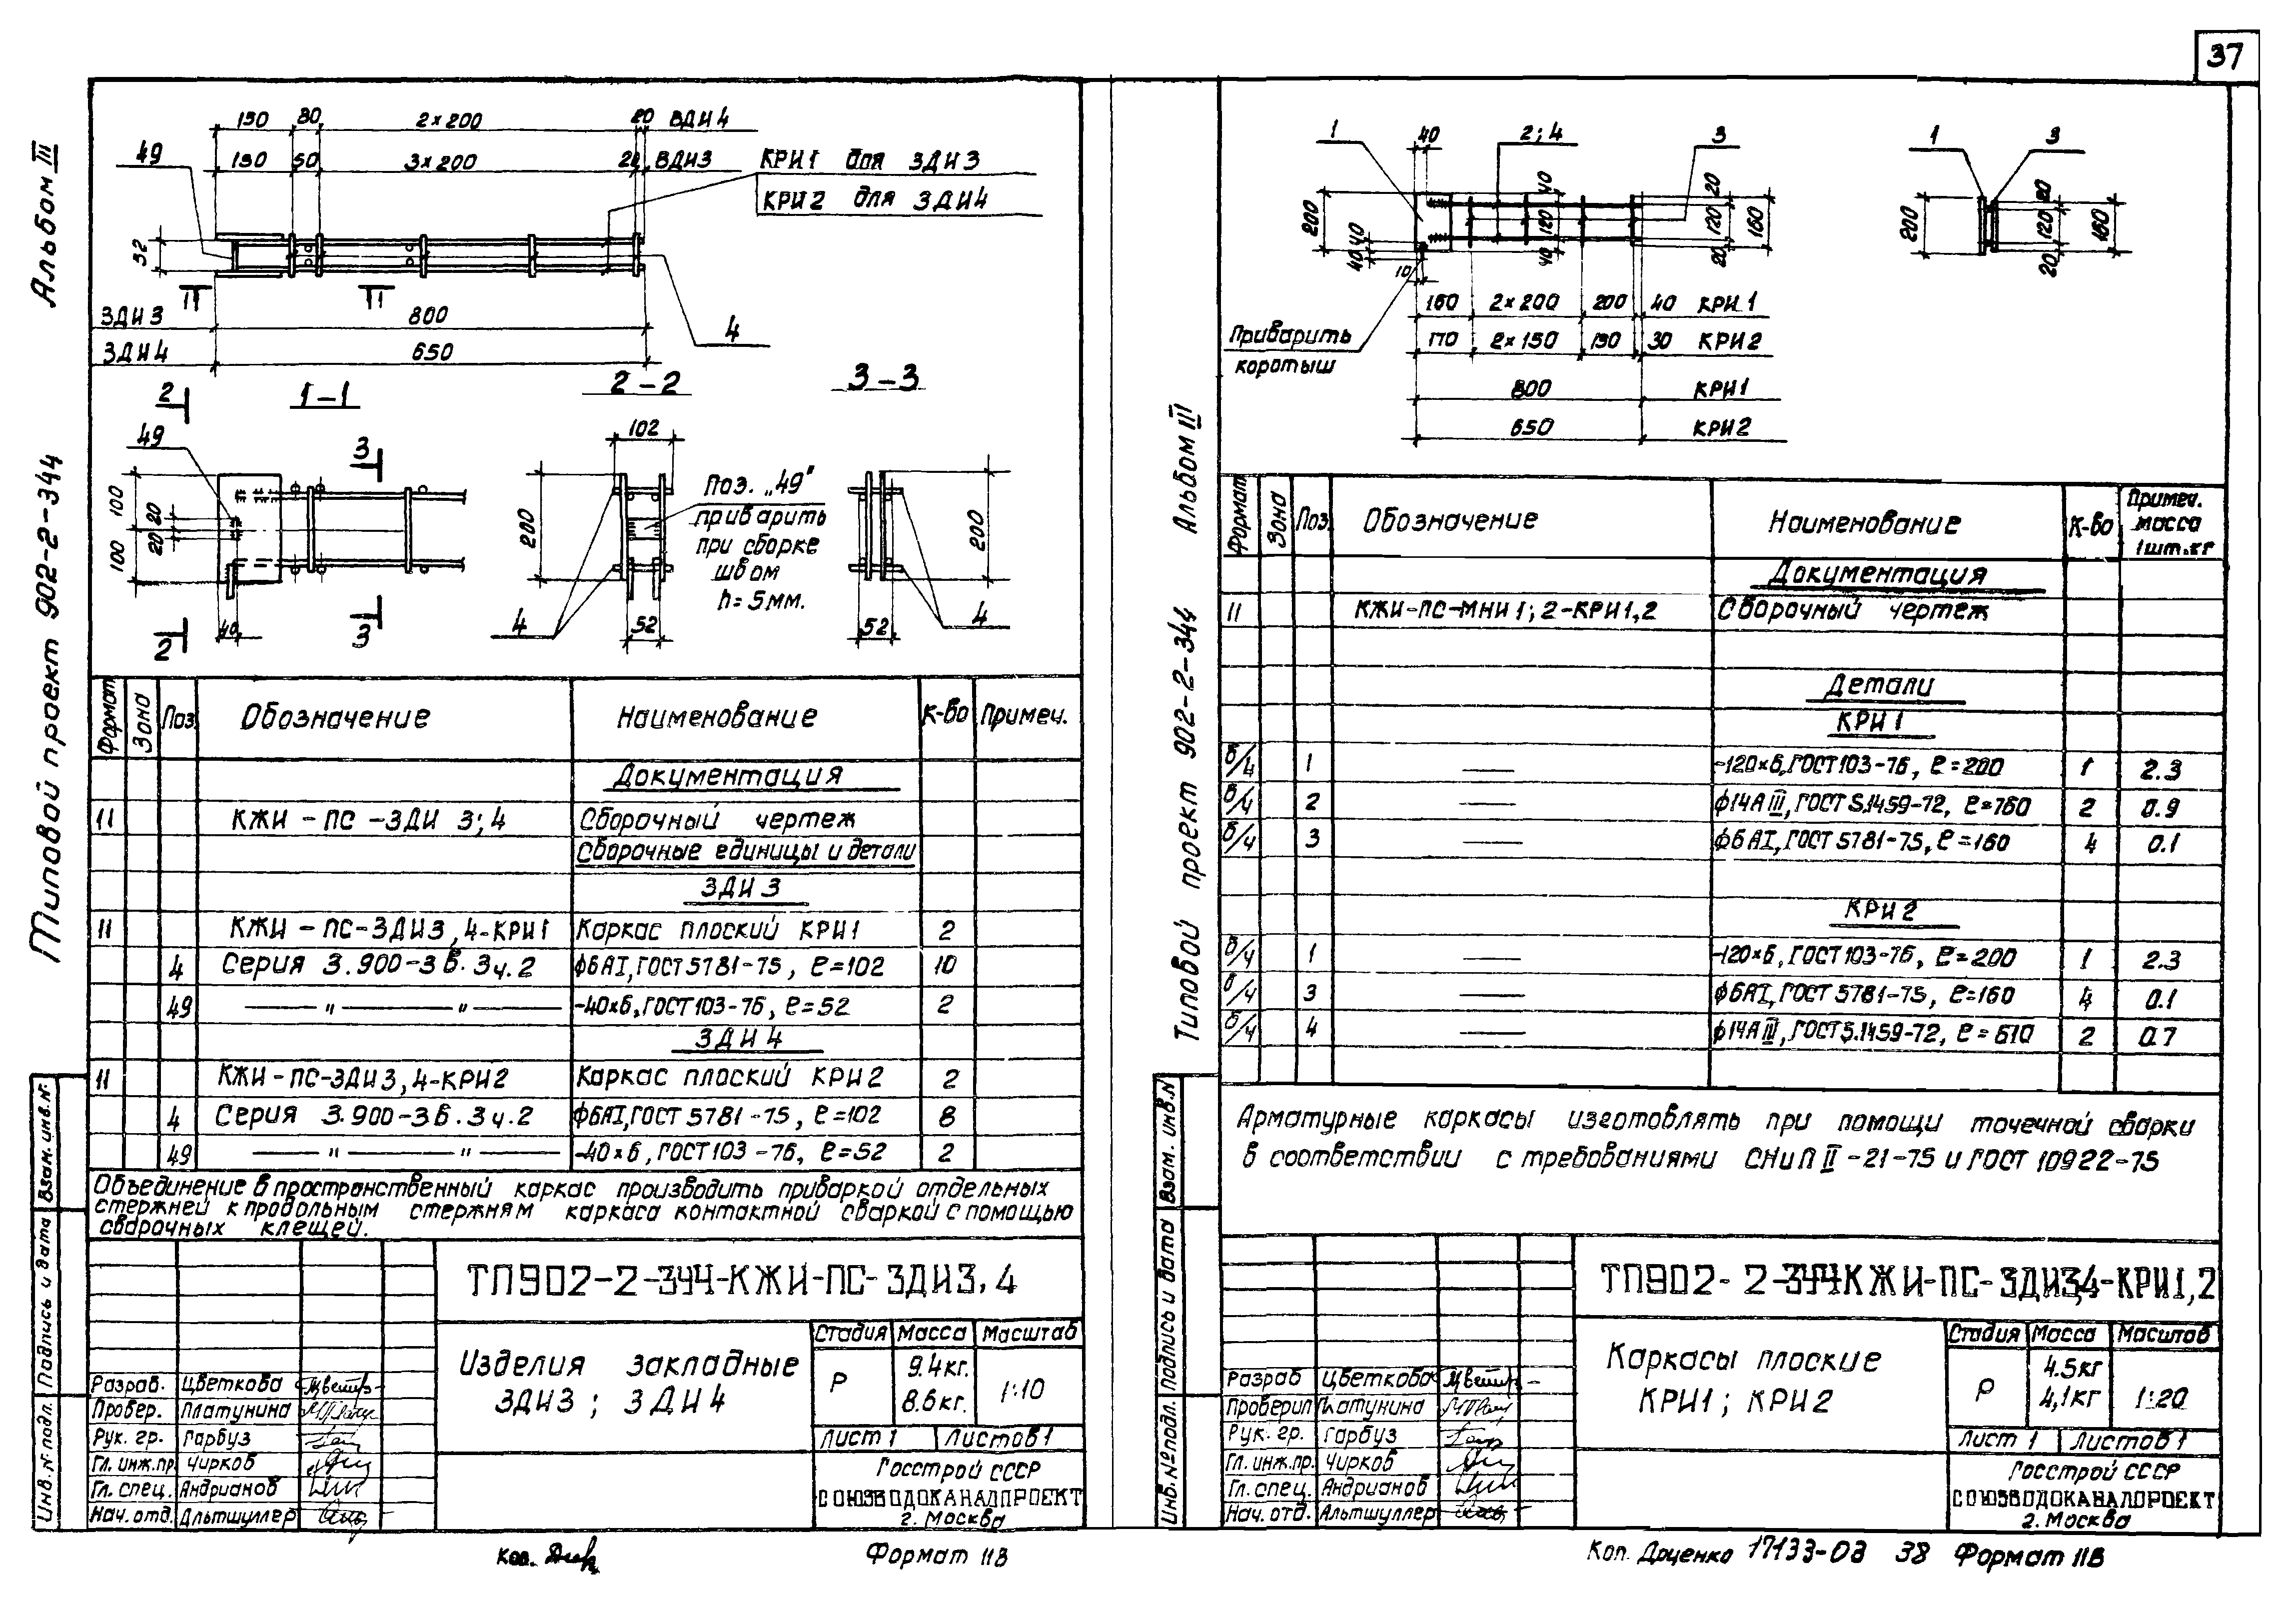 37
Альбом III
Типовой проект 902-2-344
130 80 2×200 20 ВДИ4
130 50 3×200 20 ВДИ3
49
КРИ1 для ЗДИ3
КРИ2 для ЗДИ4
52
1 1
ЗДИ3 800
4
ЗДИ4 650
2 1-1 2-2 3-3
49 3 102
100 20 20 100
200
Поз. „49"
приварить
при сборке
швом
h=5мм.
200
40
2 3
4 52 52 4
Формат Зона Поз. Обозначение Наименование К-во Примеч.
Документация
11 КЖИ-ПС-ЗДИ 3;4 Сборочный чертеж
Сборочные единицы и детали
ЗДИ3
11 КЖИ-ПС-ЗДИ3,4-КРИ1 Каркас плоский КРИ1 2
4 Серия 3.900-3 в.3 ч.2 ф6АI, ГОСТ 5781-75, ℓ=102 10
49 — " — " — -40×6, ГОСТ 103-76, ℓ=52 2
ЗДИ4
11 КЖИ-ПС-ЗДИ3,4-КРИ2 Каркас плоский КРИ2 2
4 Серия 3.900-3 в.3 ч.2 ф6АI, ГОСТ 5781-75, ℓ=102 8
49 — " — " — -40×6, ГОСТ 103-76, ℓ=52 2
Объединение в пространственный каркас производить приваркой отдельных
стержней к продольным стержням каркаса контактной сваркой с помощью
сварочных клещей.
ТП902-2-344-КЖИ-ПС-ЗДИ3,4
Изделия закладные
ЗДИ3; ЗДИ4
Стадия Масса Масштаб
Р 9.4кг. 8.6кг. 1:10
Лист 1 Листов 1
Разраб. Цветкова
Провер. Платунина
Рук. гр. Гарбуз
Гл. инж.пр. Чирков
Гл. спец. Андрианов
Нач. отд. Альтшуллер
Госстрой СССР
СОЮЗВОДОКАНАЛПРОЕКТ
г. Москва
Инв. № подл. Подпись и дата Взам. инв.№
Коп.
Формат 11В
Альбом III
Типовой проект 902-2-344
1 40 2;4 3
200 40 40 10
40 120 40
20 120 20 160
1 3
200 20 120 20 160
Приварить
коротыш
160 2×200 200 40 КРИ1
170 2×150 150 30 КРИ2
800 КРИ1
650 КРИ2
Формат Зона Поз. Обозначение Наименование К-во Примеч. масса 1шт.кг
Документация
11 КЖИ-ПС-МНИ1;2-КРИ1,2 Сборочный чертеж
Детали
КРИ1
б/ч 1 — -120×6, ГОСТ 103-76, ℓ=200 1 2.3
б/ч 2 — ф14АIII, ГОСТ 5.1459-72, ℓ=760 2 0.9
б/ч 3 — ф6АI, ГОСТ 5781-75, ℓ=160 4 0.1
КРИ2
б/ч 1 — -120×6, ГОСТ 103-76, ℓ=200 1 2.3
б/ч 3 — ф6АI, ГОСТ 5781-75, ℓ=160 4 0.1
б/ч 4 — ф14АIII, ГОСТ 5.1459-72, ℓ=610 2 0.7
Арматурные каркасы изготовлять при помощи точечной сварки
в соответствии с требованиями СНиП II-21-75 и ГОСТ 10922-75
ТП902-2-344КЖИ-ПС-ЗДИ3,4-КРИ1,2
Каркасы плоские
КРИ1; КРИ2
Стадия Масса Масштаб
Р 4.5кг 4,1кг 1:20
Лист 1 Листов 1
Разраб Цветкова
Проверил Платунина
Рук. гр. Гарбуз
Гл. инж.пр. Чирков
Гл. спец. Андрианов
Нач. отд. Альтшуллер
Госстрой СССР
СОЮЗВОДОКАНАЛПРОЕКТ
г. Москва
Инв. № подл. Подпись и дата Взам. инв.№
Коп. Доценко 17133-03 38 Формат 11В